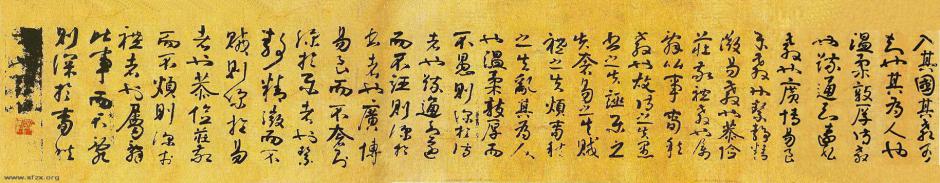 入其國其教可
知也其為人也
溫柔敦厚詩教
也疏通知遠書
教也廣博易良
樂教也絜靜精
微易教也恭儉
莊敬禮教也屬
辭比事春秋
教也故詩之失愚
書之失誣樂之
失奢易之失賊
禮之失煩春秋
之失亂其為人
也溫柔敦厚而
不愚則深於詩
者也疏通知遠
而不誣則深於
書者也廣博
易良而不奢則
深於樂者也絜
靜精微而不
賊則深於易
者也恭儉莊敬
而不煩則深於
禮者也屬辭
比事而不亂
則深於春秋
www.sfzx.org